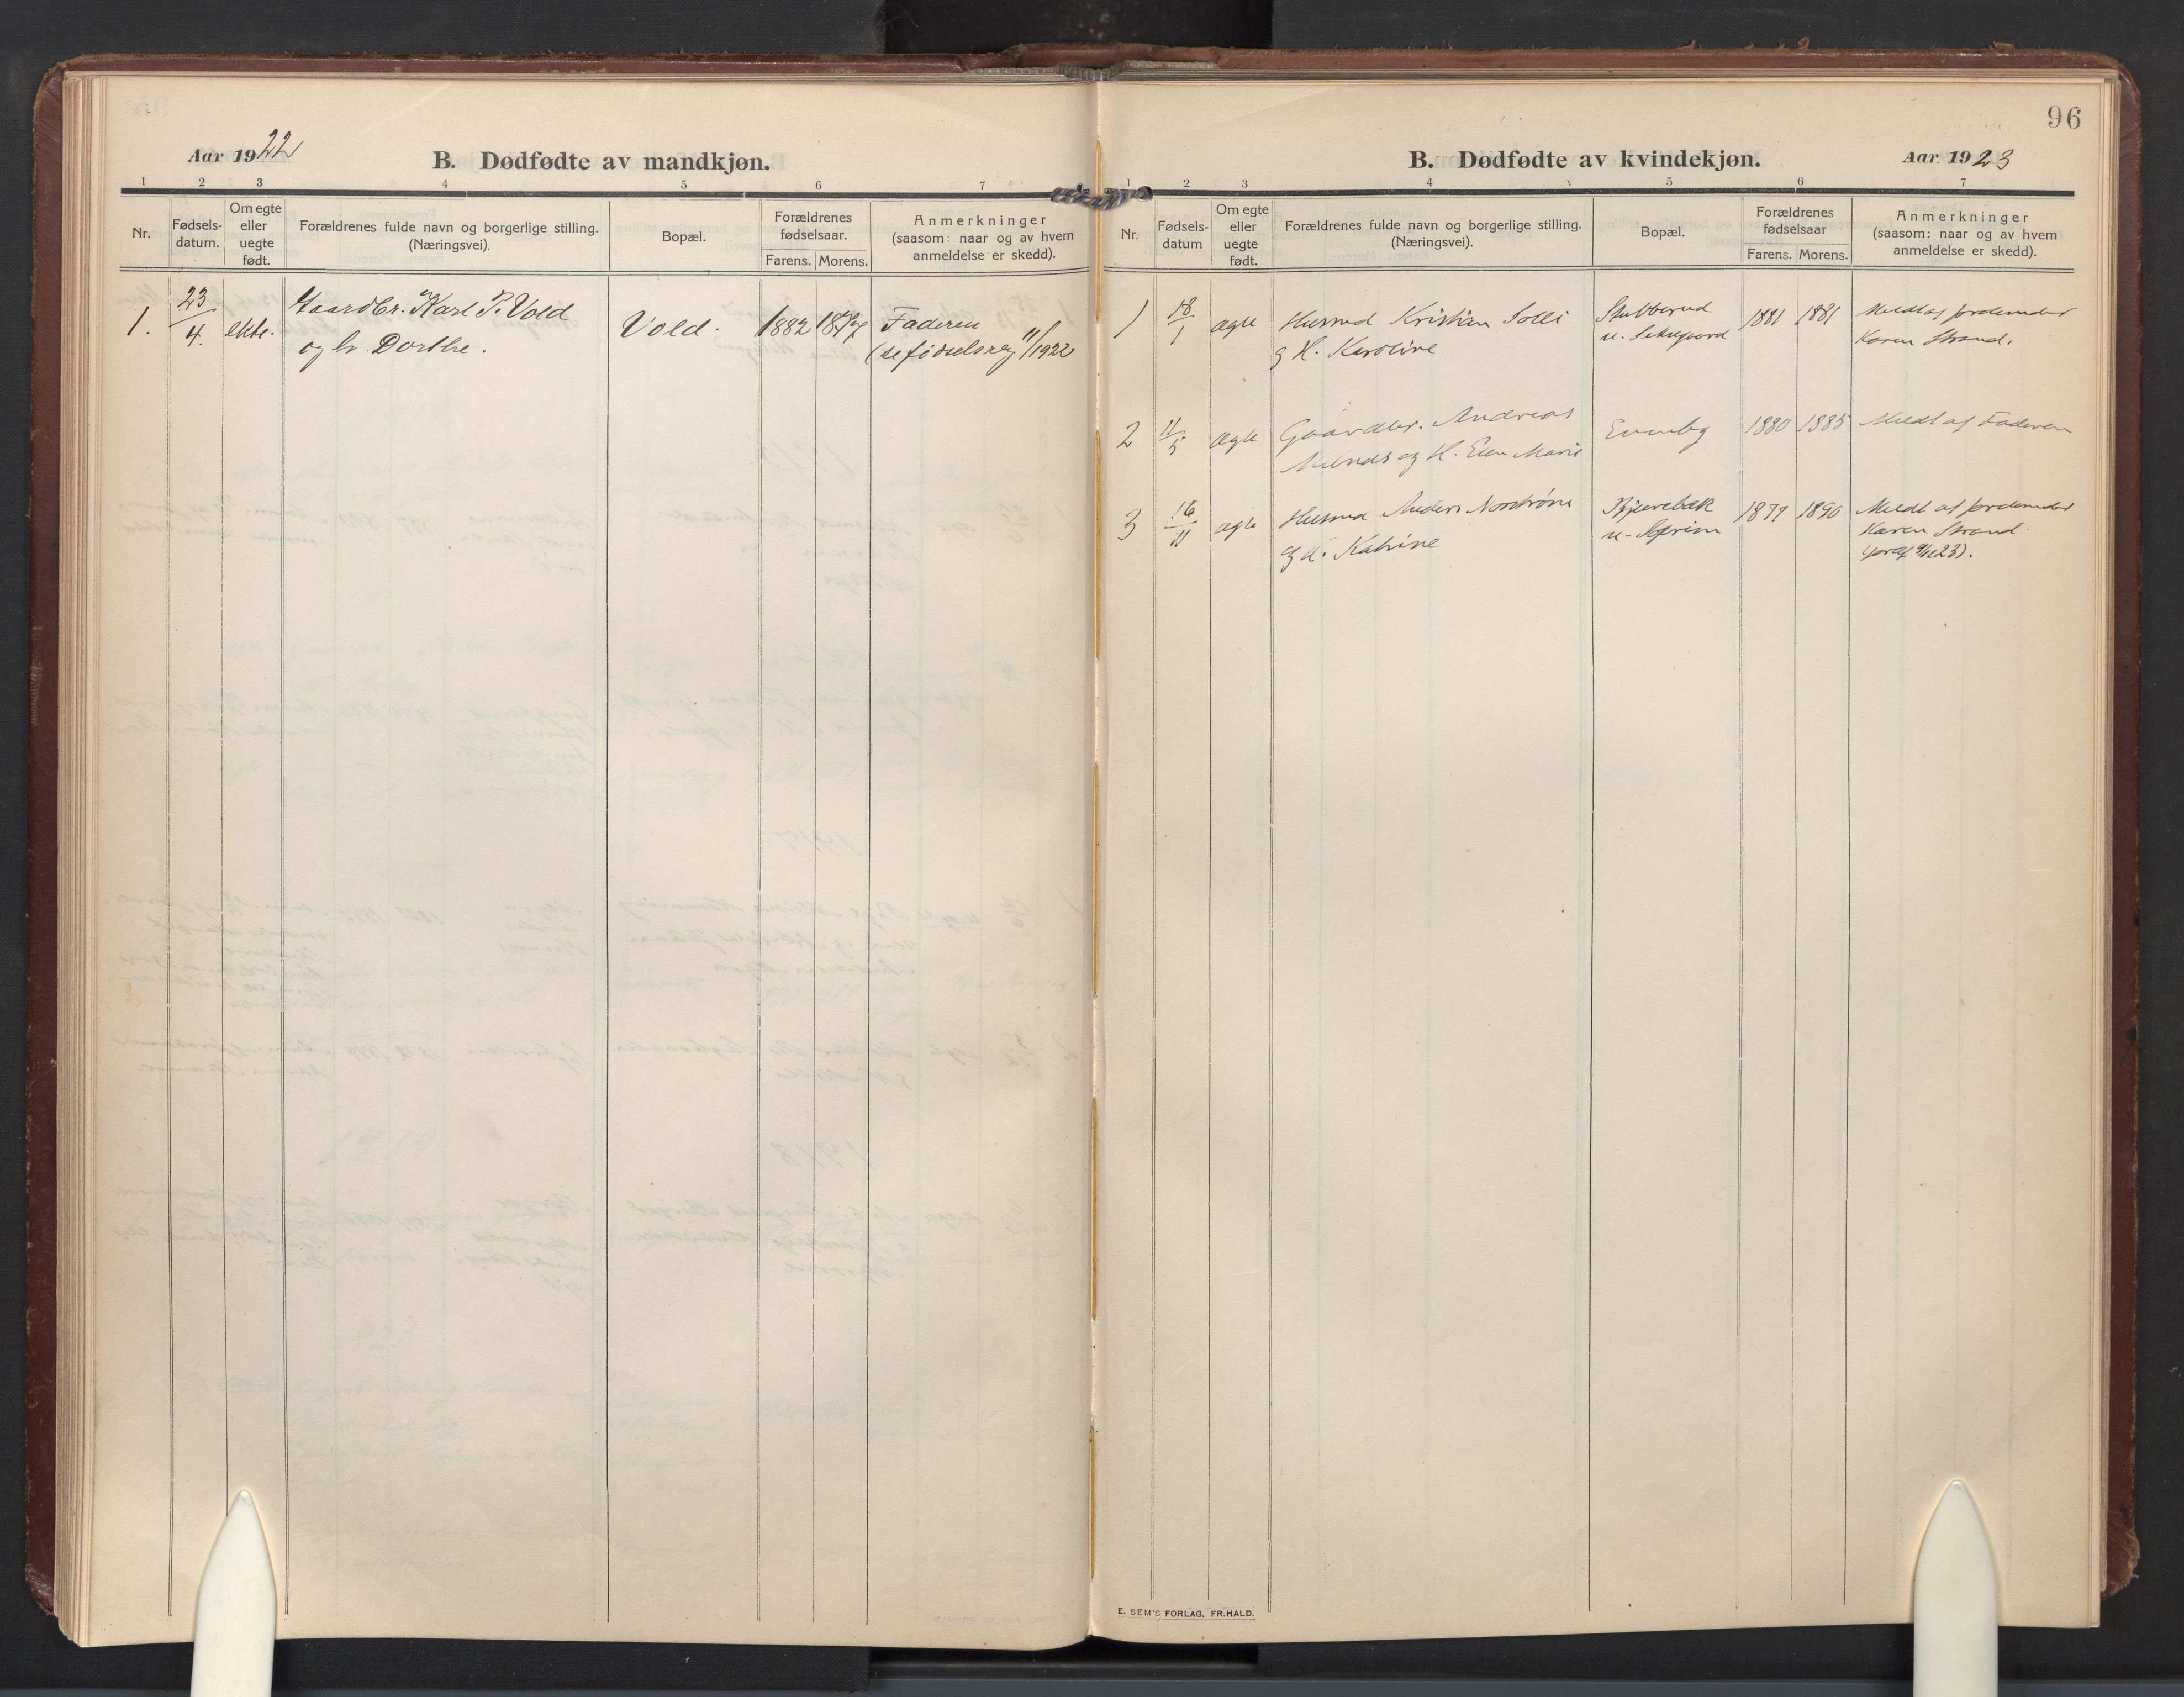 Aar 1922
B. Dødfødte av mandkjøn.
1 2 3 4 5 6 7
Nr.
Fødsels-
datum.
Om egte
eller
uegte
født.
Forældrenes fulde navn og borgerlige stilling.
(Næringsvei).
Bopæl.
Forældrenes
fødselsaar.
Farens. Morens.
Anmerkninger
(saasom: naar og av hvem
anmeldelse er skedd).
1. 23/4. ekte. Gaardbr. Karl P. Vold Vold. 1882 Faderen
og h. Dorthe. (se fødselsreg 11/1922
96
B. Dødfødte av kvindekjøn.
Aar 1923
1 2 3 4 5 6 7
Nr.
Fødsels-
datum
Om egte
eller
uegte
født.
Forældrenes fulde navn og borgerlige stilling.
(Næringsvei).
Bopæl.
Forældrenes
fødselsaar
Farens. Morens.
Anmerkninger
(saasom: naar og av hvem
anmeldelse er skedd).
1 18/1 ægte Husmd Kristian Solli Stubberud 1881 1881 Meldt af jordemoder
og H. Karoline u. Karen Strand.
2 11/5 ægte Gaardbr. Andreas 1880 1885 Meldt af Faderen
og H. Elen Marie
3 16/11 ægte Husmd Anders 1877 1890 Meldt af jordemoder
og H. Katrine u. Karen Strand
E. SEM'S FORLAG, FR.HALD.